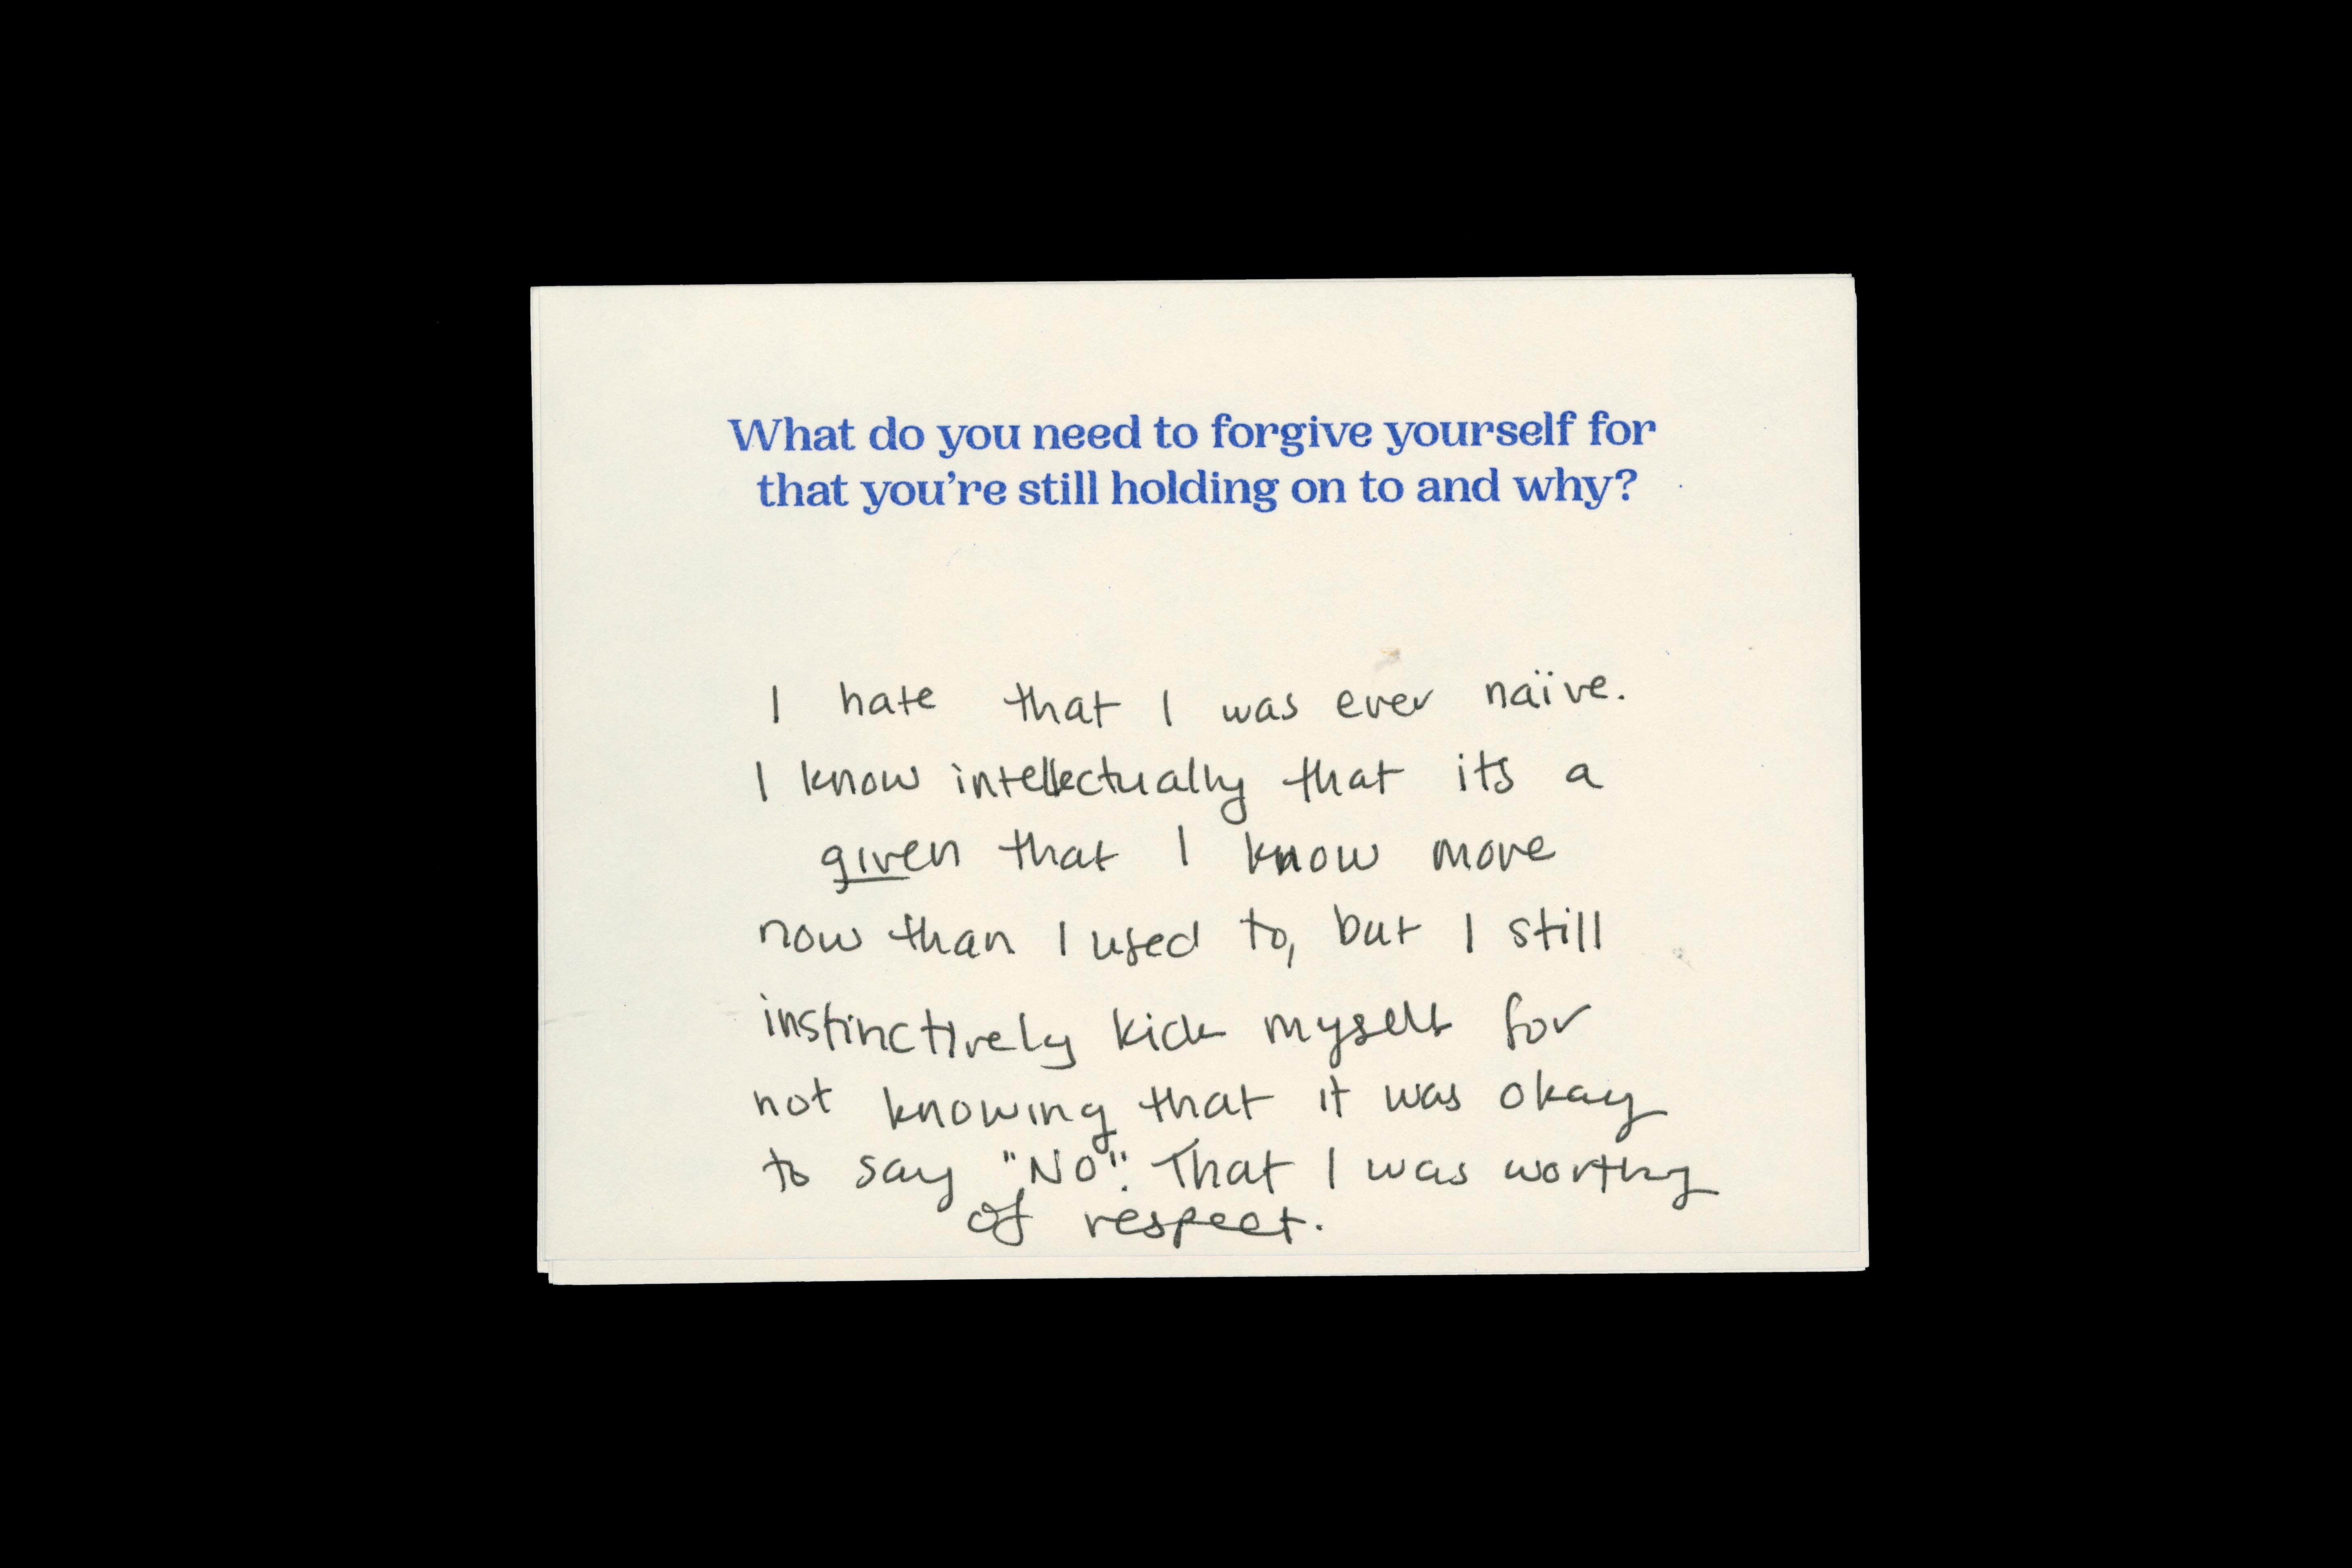 What do you need to forgive yourself for
that you're still holding on to and why?
I hate that I was ever naïve.
I know intellectually that its a
given that I know more
now than I used to, but I still
instinctively kick myself for
not knowing that it was okay
to say "No". That I was worthy
of respect.